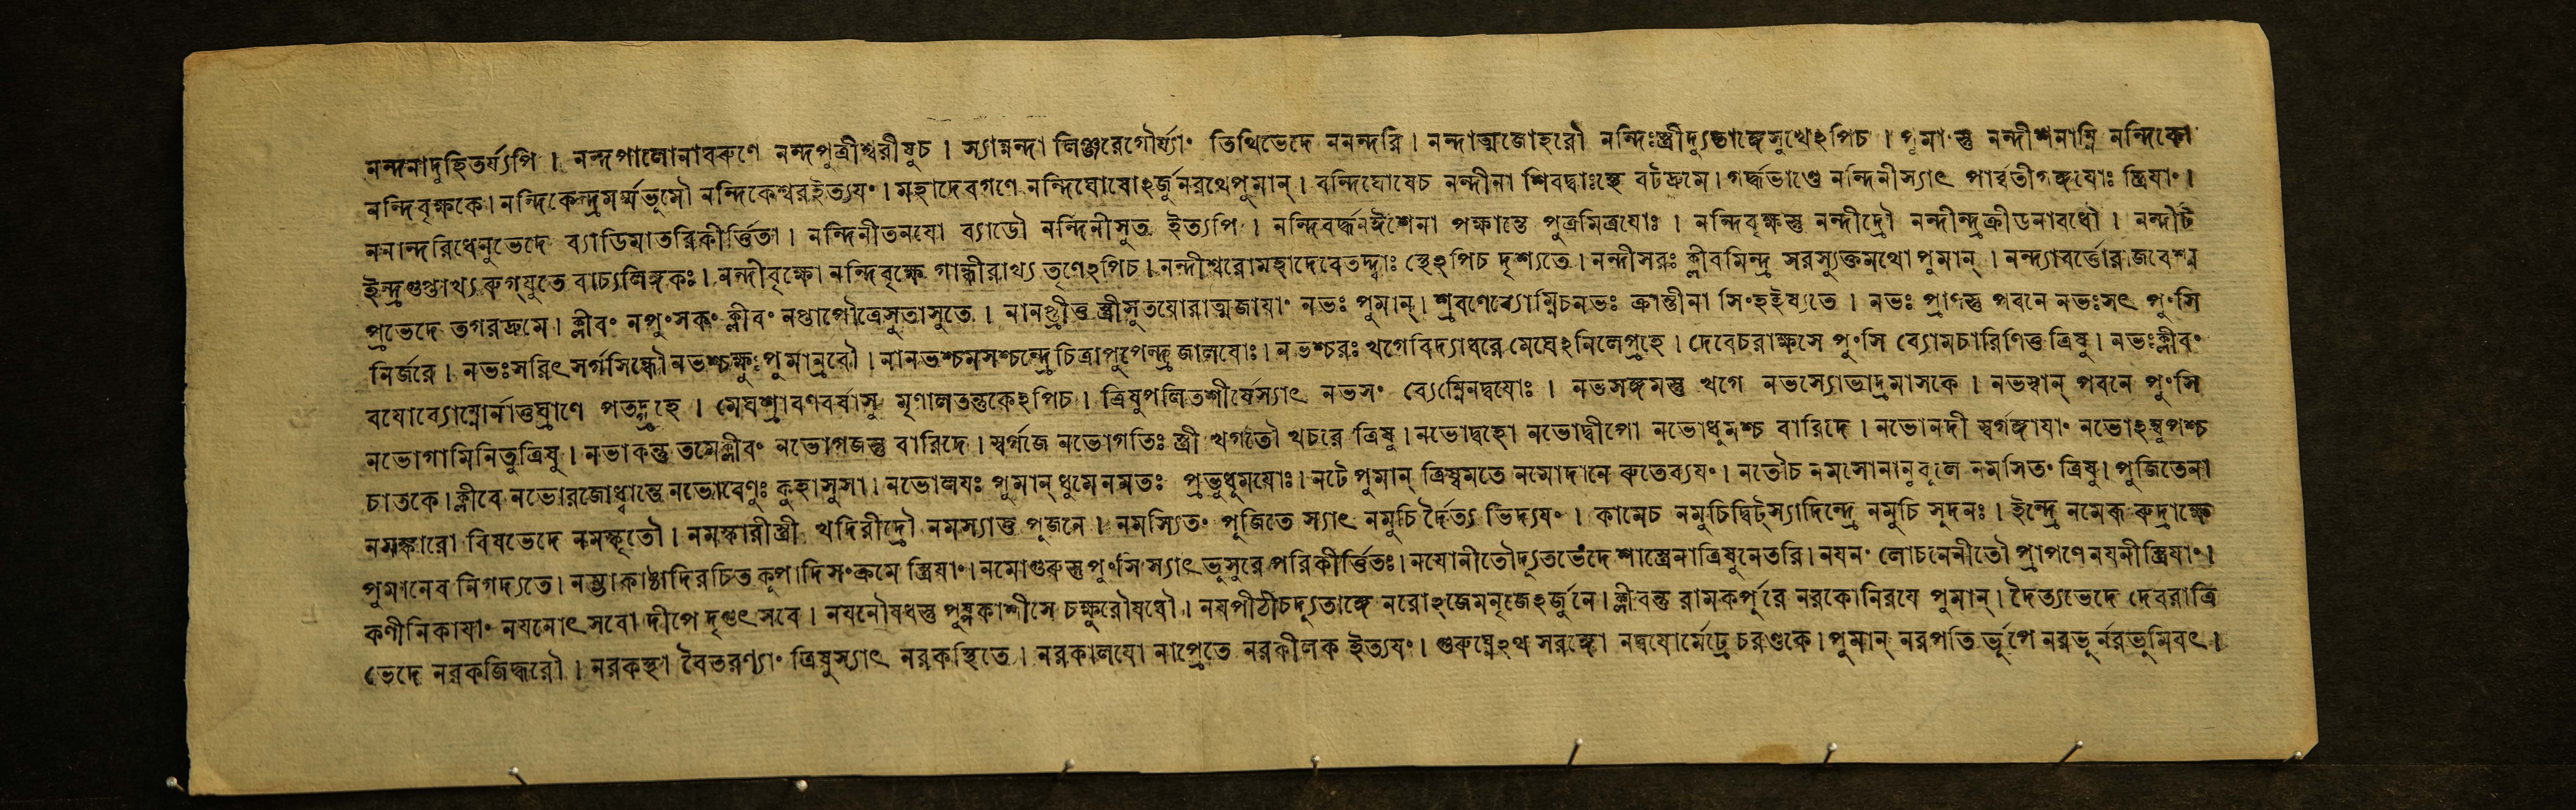 নন্দনাদুহিতর্য্যপি । নন্দপালোনাবরুণে নন্দপুত্রীশ্বরীষুচ । স্যান্নন্দা লিঞ্জরেগৌর্য্যাং তিথিভেদে ননন্দরি । নন্দাত্মজোহরৌ নন্দিঃস্ত্রীদ্যূতাঙ্গেসুখেঽপিচ । পুমাংস্তু নন্দীশনাম্নি নন্দিকো
নন্দিবৃক্ষকে । নন্দিকেন্দ্রমর্ম্মভুমৌ নন্দিকেশ্বরইত্যযং । মহাদেবগণে নন্দিঘোষোঽর্জুনরথেপুমান্ । বন্দিঘোষেচ নন্দীনা শিবদ্বাঃস্থে বটদ্রুমে । গর্দ্ধভাণ্ডে নন্দিনীস্যাৎ পার্ব্বতীগঙ্গযোঃ স্ত্রিযাং ।
ননান্দরিধেনুভেদে ব্যাডিমাতরিকীর্ত্তিতা । নন্দিনীতনযো ব্যাডৌ নন্দিনীসুত ইত্যপি । নন্দিবর্দ্ধনঈশেনা পক্ষান্তে পুত্রমিত্রযোঃ । নন্দিবৃক্ষস্তু নন্দীদ্রৌ নন্দীন্দ্রক্রীডনাবধৌ । নন্দীট
ইন্দ্রলুপ্তাখ্য রুগ্‌যুতে বাচ্যলিঙ্গকঃ । নন্দীবৃক্ষো নন্দিবৃক্ষে গান্ধীরাখ্য তৃণেঽপিচ । নন্দীশ্বরোমহাদেবেতদ্দ্বাঃ স্থেঽপিচ দৃশ্যতে । নন্দীসরঃ ক্লীবমিন্দ্র সরস্যুক্তমথো পুমান্ । নন্দ্যাবর্ত্তোরাজবেশ্ম
প্রভেদে তগরদ্রুমে । ক্লীবং নপুংসকং ক্লীবং নপ্তাপৌত্রেসুতাসুতে । নানপ্ত্রীত্ত স্ত্রীসুতযোরাত্মজাযাং নভঃ পুমান্ । শ্রবণেব্যোম্নিচনভঃ ক্রান্তীনা সিংহইষ্যতে । নভঃ প্রাণস্তু পবনে নভঃসৎ পুংসি
নির্জরে । নভঃসরিৎ সর্গসিন্ধৌ নভশ্চক্ষুঃ পুমান্রবৌ । নানভশ্চমসশ্চন্দ্রে চিত্রাপুপেন্দ্র জালযোঃ । নভশ্চরঃ খগেবিদ্যাধরে মেঘেঽনিলেগ্রহে । দেবেচরাক্ষসে পুংসি ব্যোমচারিণিত্ত ত্রিষু । নভঃক্লীবং
বযোব্যোম্নোর্নাত্তঘ্রাণে পতদ্গ্রহে । মেঘশ্রাবণবর্ষাসু মৃণালতন্তুকেঽপিচ । ত্রিষুপলিতশীর্ষেস্যাৎ নভসং ব্যেম্নিনদ্বযোঃ । নভসঙ্গমস্তু খগে নভস্যোভাদ্রমাসকে । নভস্বান্ পবনে পুংসি
নভোগামিনিতুত্রিষু । নভাকন্তু তমেক্লীবং নভোগজস্তু বারিদে । স্বর্গজে নভোগতিঃ স্ত্রী খগতৌ খচরে ত্রিষু । নভোদ্বহো নভোদ্বীপো নভোধুমশ্চ বারিদে । নভোনদী স্বর্গঙ্গাযাং নভোঽম্বুপশ্চ
চাতকে । ক্লীবে নভোরজোধ্বান্তে নভোবেণুঃ কুহাসুসা । নভোলযঃ পুমান্ ধুমেনমতঃ প্রভূধুমযোঃ । নটে পুমান্ ত্রিষ্বমতে নমোদানে রুতেব্যযং । নতৌচ নমসোনানুকূলে নমসিতং ত্রিষু । পুজিতেনা
নমস্কারো বিষভেদে নমস্কৃতৌ । নমস্কারীস্ত্রী খদিরীদ্রৌ নমস্যাত্ত পুজনে । নমস্যিতং পুজিতে স্যাৎ নমুচি র্দৈত্য ভিদ্যযং । কামেচ নমুচিদ্বিট্‌স্যাদিন্দ্রে নমুচি সুদনঃ । ইন্দ্রে নমেরু রুদ্রাক্ষে
পুমানেব নিগদ্যতে । নম্ভাকাষ্ঠাদিরচিত কূপাদিসংক্রমে স্ত্রিযাং । নমোগুরুস্তুপুংসি স্যাৎ ভুসুরে পরিকীর্ত্তিতঃ । নযোনীতৌদ্যূতভেদে শাস্ত্রেনাত্রিষুনেতরি । নযনং লোচনেনীতৌ প্রাপণে নযনীস্ত্রিযাং ।
কণীনিকাযাং নযনোৎসবো দীপে দৃগুৎসবে । নযনৌষধস্তু পুষ্পকাশীসে চক্ষুরৌষধৌ । নয়পীঠীচদ্যূতাঙ্গে নরোঽজেমনুজেঽর্জুনে । ক্লীবন্তু রামকর্পুরে নরকোনিরযে পুমান্ । দৈত্যভেদে দেবরাত্রি
ভেদে নরকজিদ্ধরৌ । নরকস্থা বৈতরণ্যাং ত্রিষুস্যাৎ নরকস্থিতে । নরকালযো নাপ্রেতে নরকীলক ইত্যযং । গুরুঘ্নেঽথ সরঙ্গো নদ্বযোর্মেঢ্রে চরণ্ডকে । পুমান্ নরপতি র্ভূপে নরভূ র্নরভূমিবৎ ।